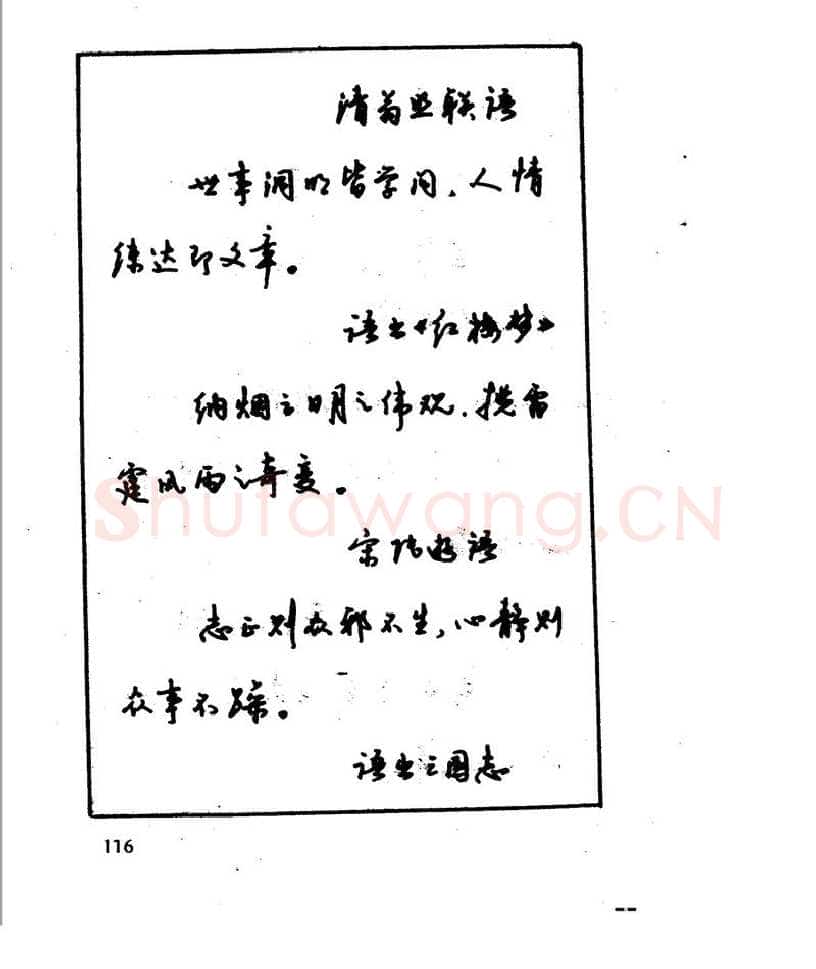 清黄丕联语
世事洞明皆学问，人情
练达即文章。
语出《红楼梦》
纳烟云日月之伟观，揽雷
霆风雨之奇变。
宋陆游语
志正则众邪不生，心静则
众事不躁。
语出三国志
116
Shufawang.CN